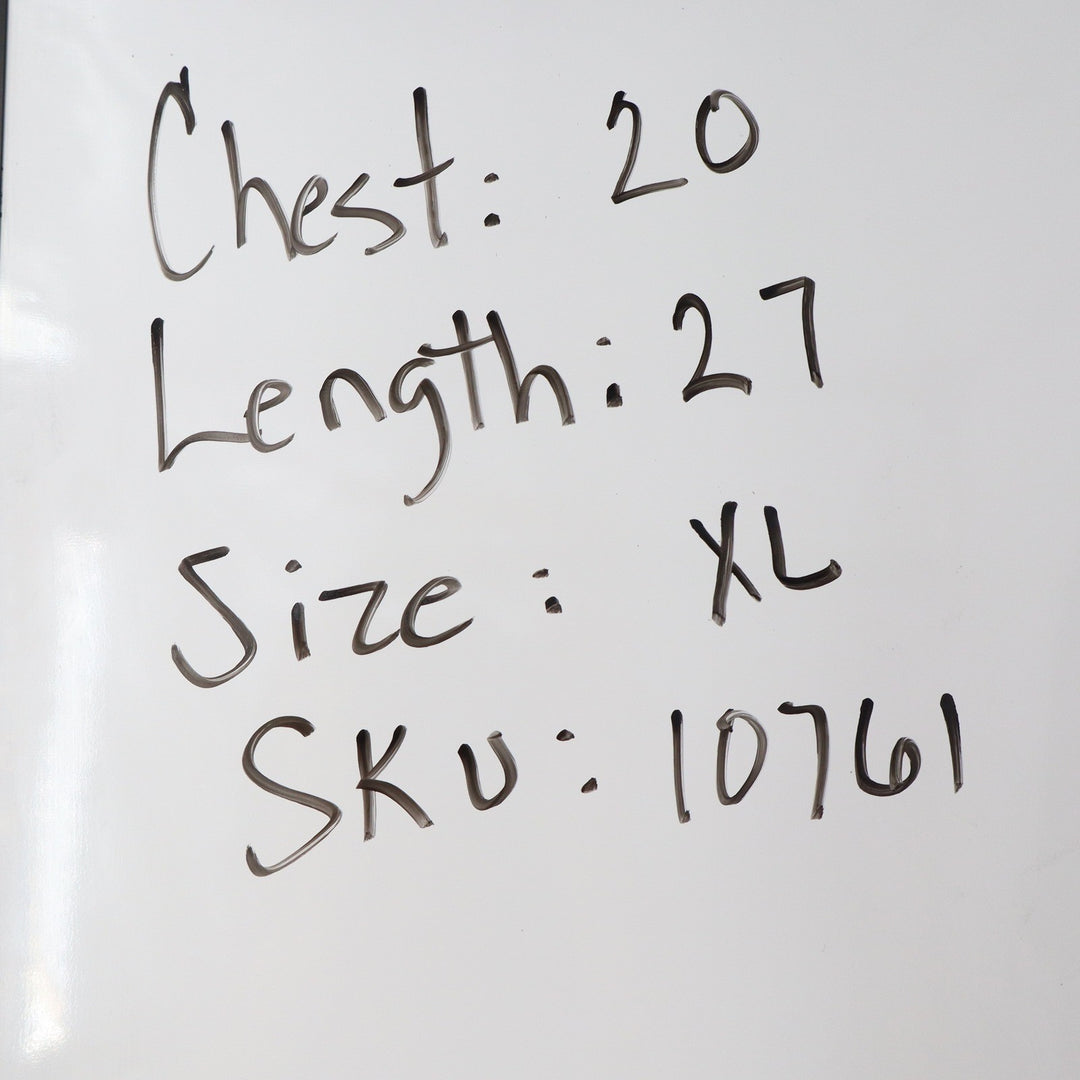 Chest: 20
Length: 27
Size: XL
SKU: 10761